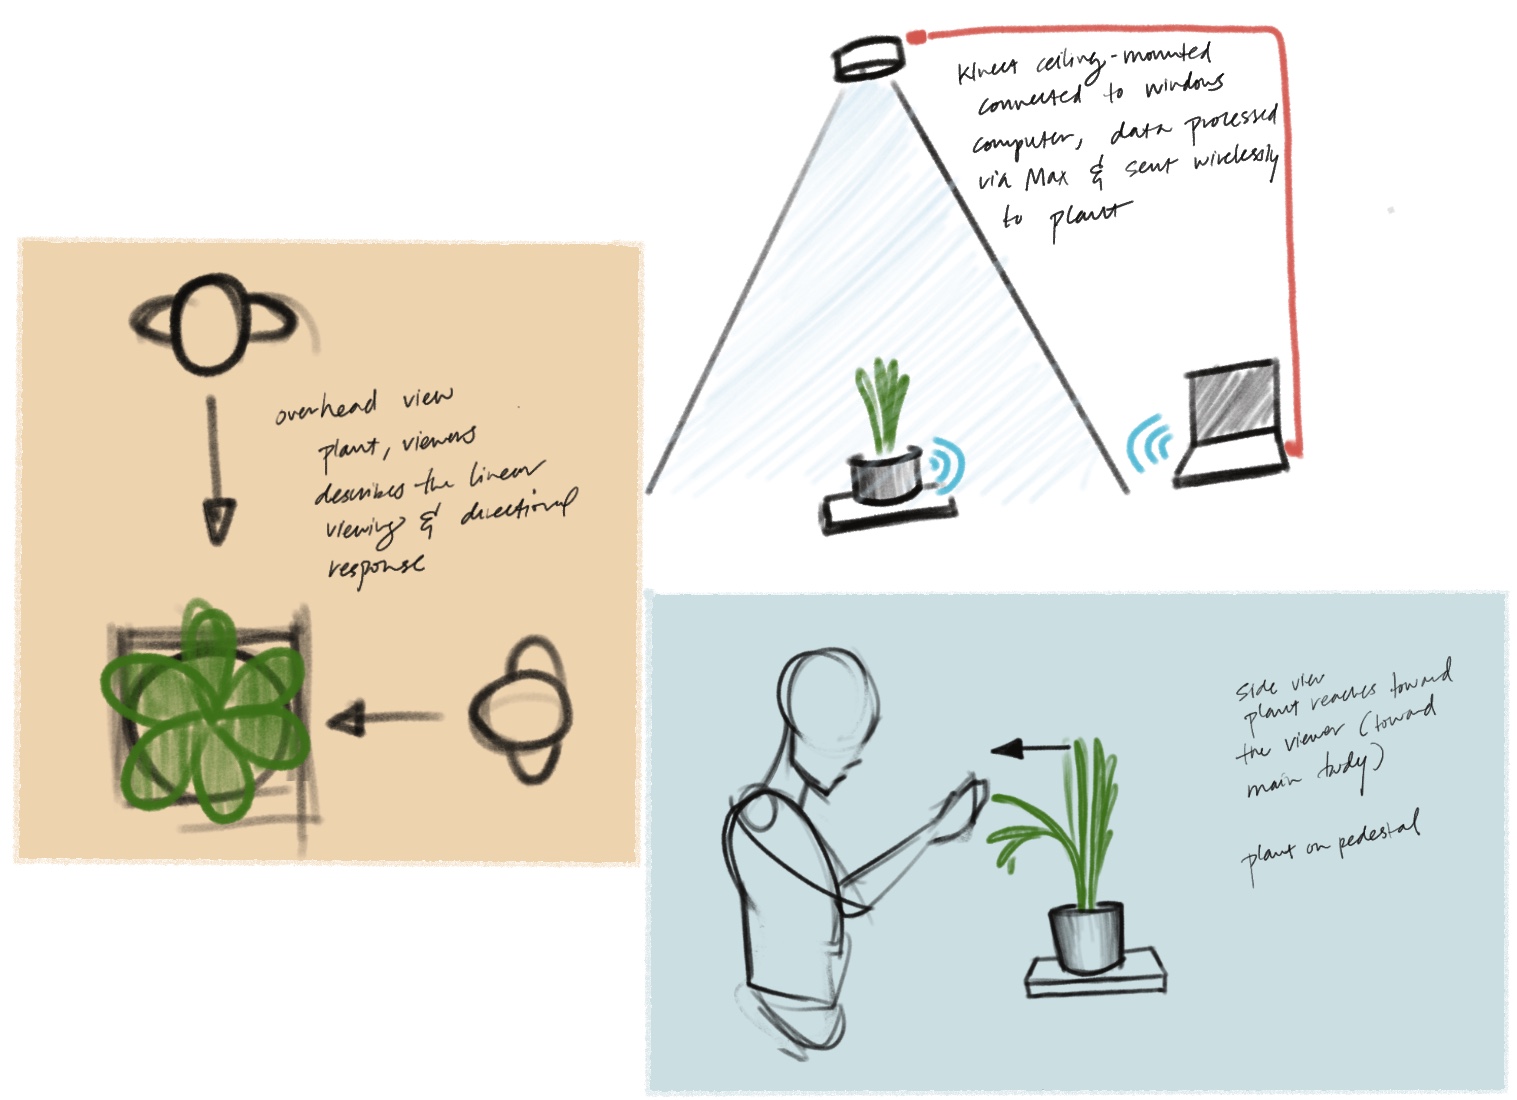 Kinect ceiling-mounted
connected to windows
computer, data processed
via Max & sent wirelessly
to plant
overhead view
plant, viewers
describes the linear
viewing & directional
response
side view
plant reaches toward
the viewer (toward
main body)
plant on pedestal